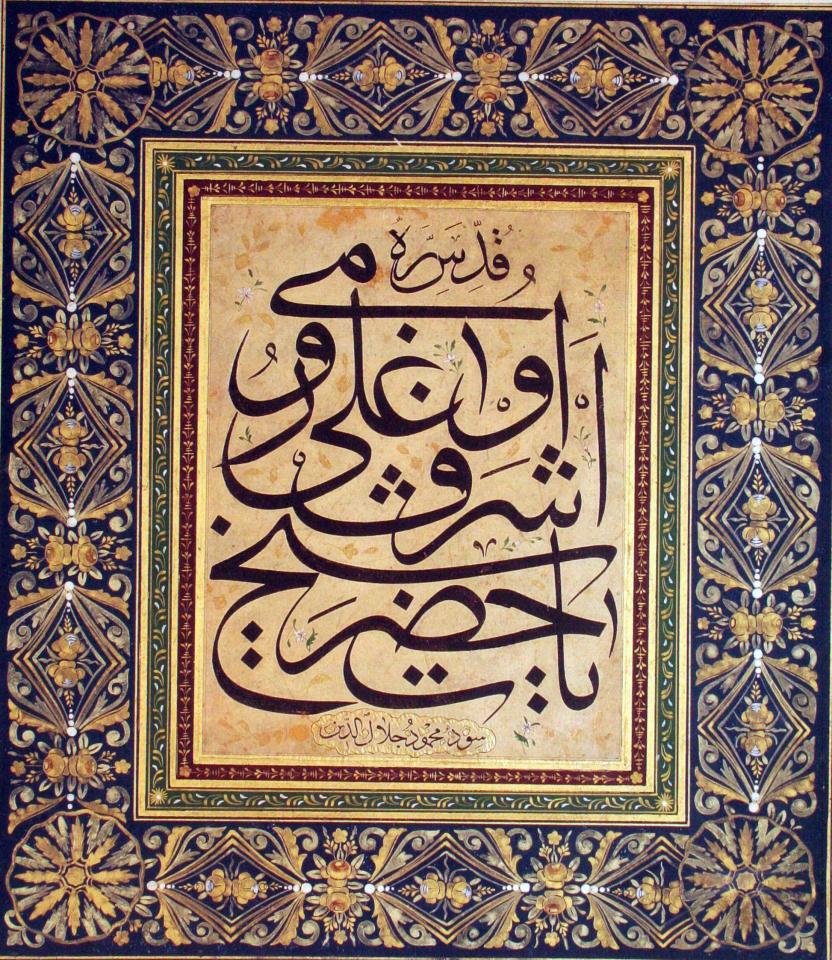 يا حضرت شيخ
اشرف اوغلى رومى
قدّس سرّه
سوده محمود جلال الدين